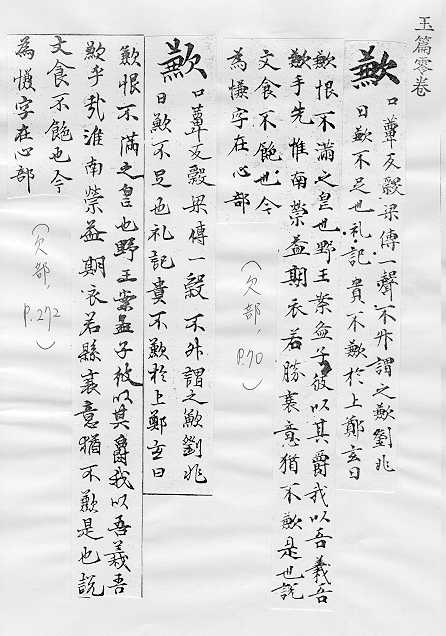 玉篇零卷
歉 口蕈反穀梁傳一聲不升謂之歉劉兆
曰歉不足也礼記貴不歉於上鄭玄曰
歉恨不滿之皇也野王案孟子彼以其爵我以吾義吾
歉乎先惟南榮益期衣若勝裏意猶不歉是也說
文食不飽也今
為慊字在心部
（欠部，P.70）
歉 口蕈反穀梁傳一穀不升謂之歉劉兆
曰歉不足也礼記貴不歉於上鄭玄曰
歉恨不滿之皇也野王案孟子彼以其爵我以吾義吾
歉乎哉淮南榮益期衣若縣衰意猶不歉是也說
文食不飽也今
為慊字在心部
（欠部，P.272）